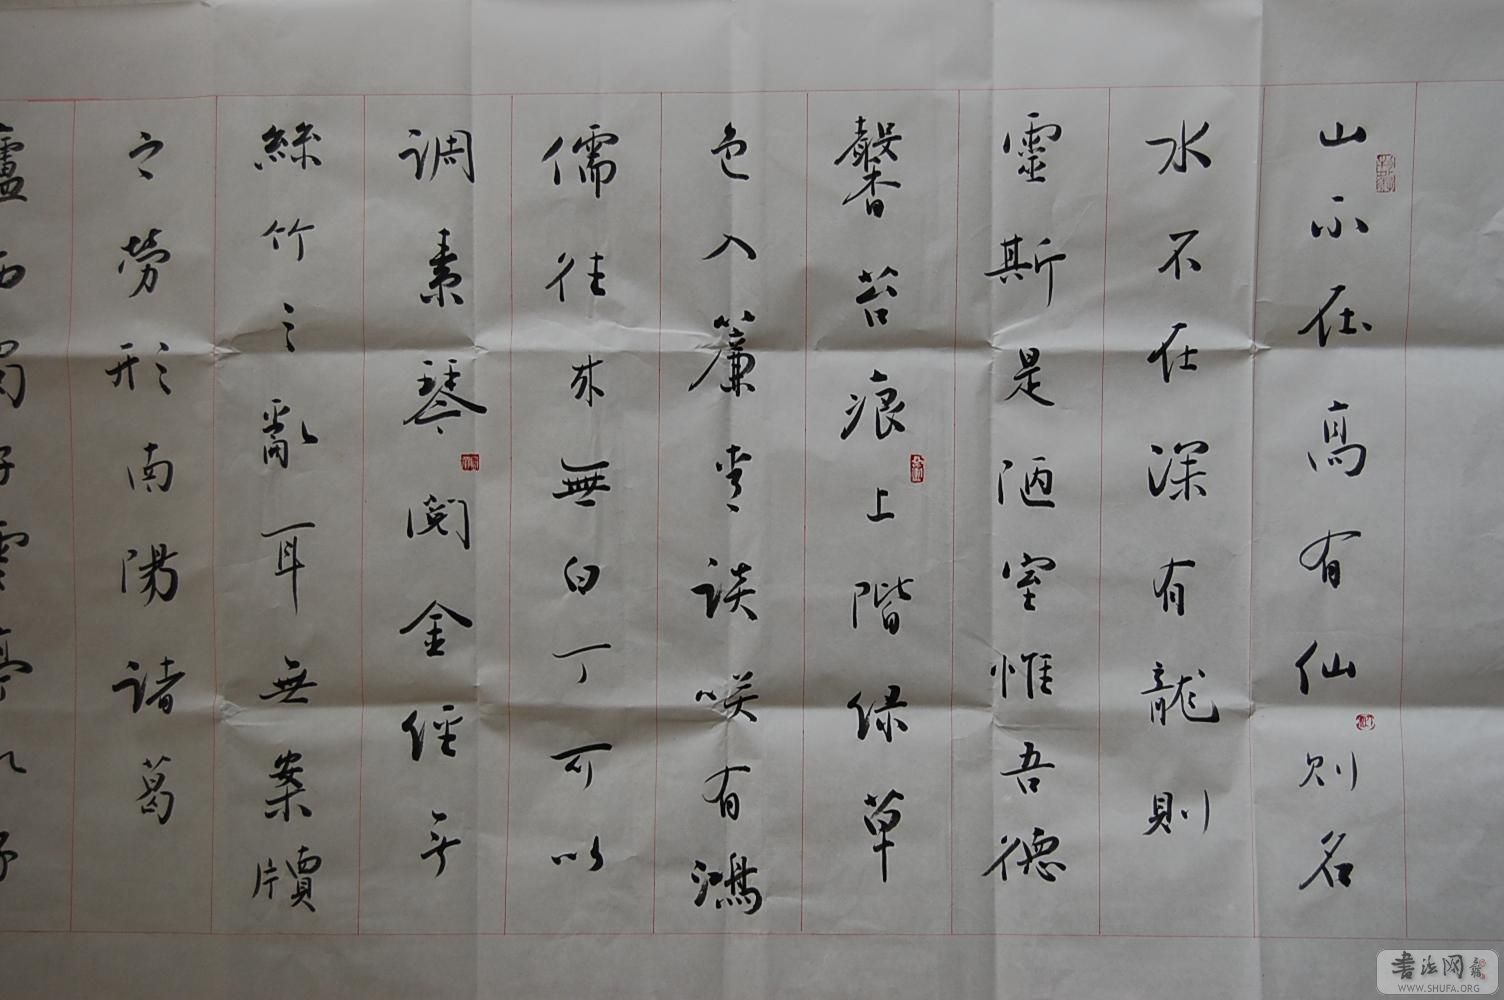 山不在高有仙则名
水不在深有龍則
靈斯是陋室惟吾德
馨苔痕上階緑草
色入簾青談咲有鴻
儒往来無白丁可以
调素琴閲金經无
絲竹之亂耳無案牘
之勞形南陽諸葛
廬西蜀子雲亭孔子
書法网
WWW.SHUFA.ORG